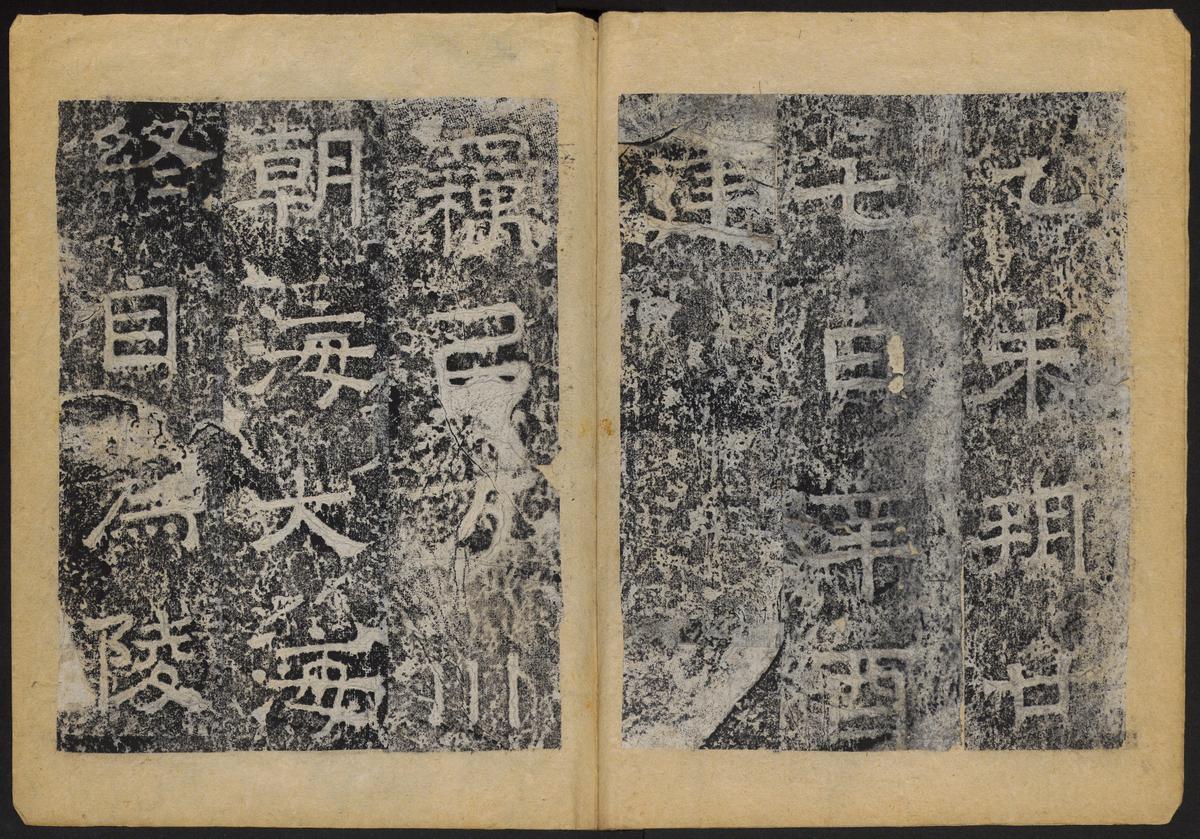 乙未朔廿
七日辛酉
建
稱川
朝海大海
終自為陵